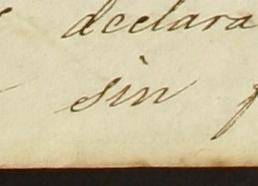 declara
sin